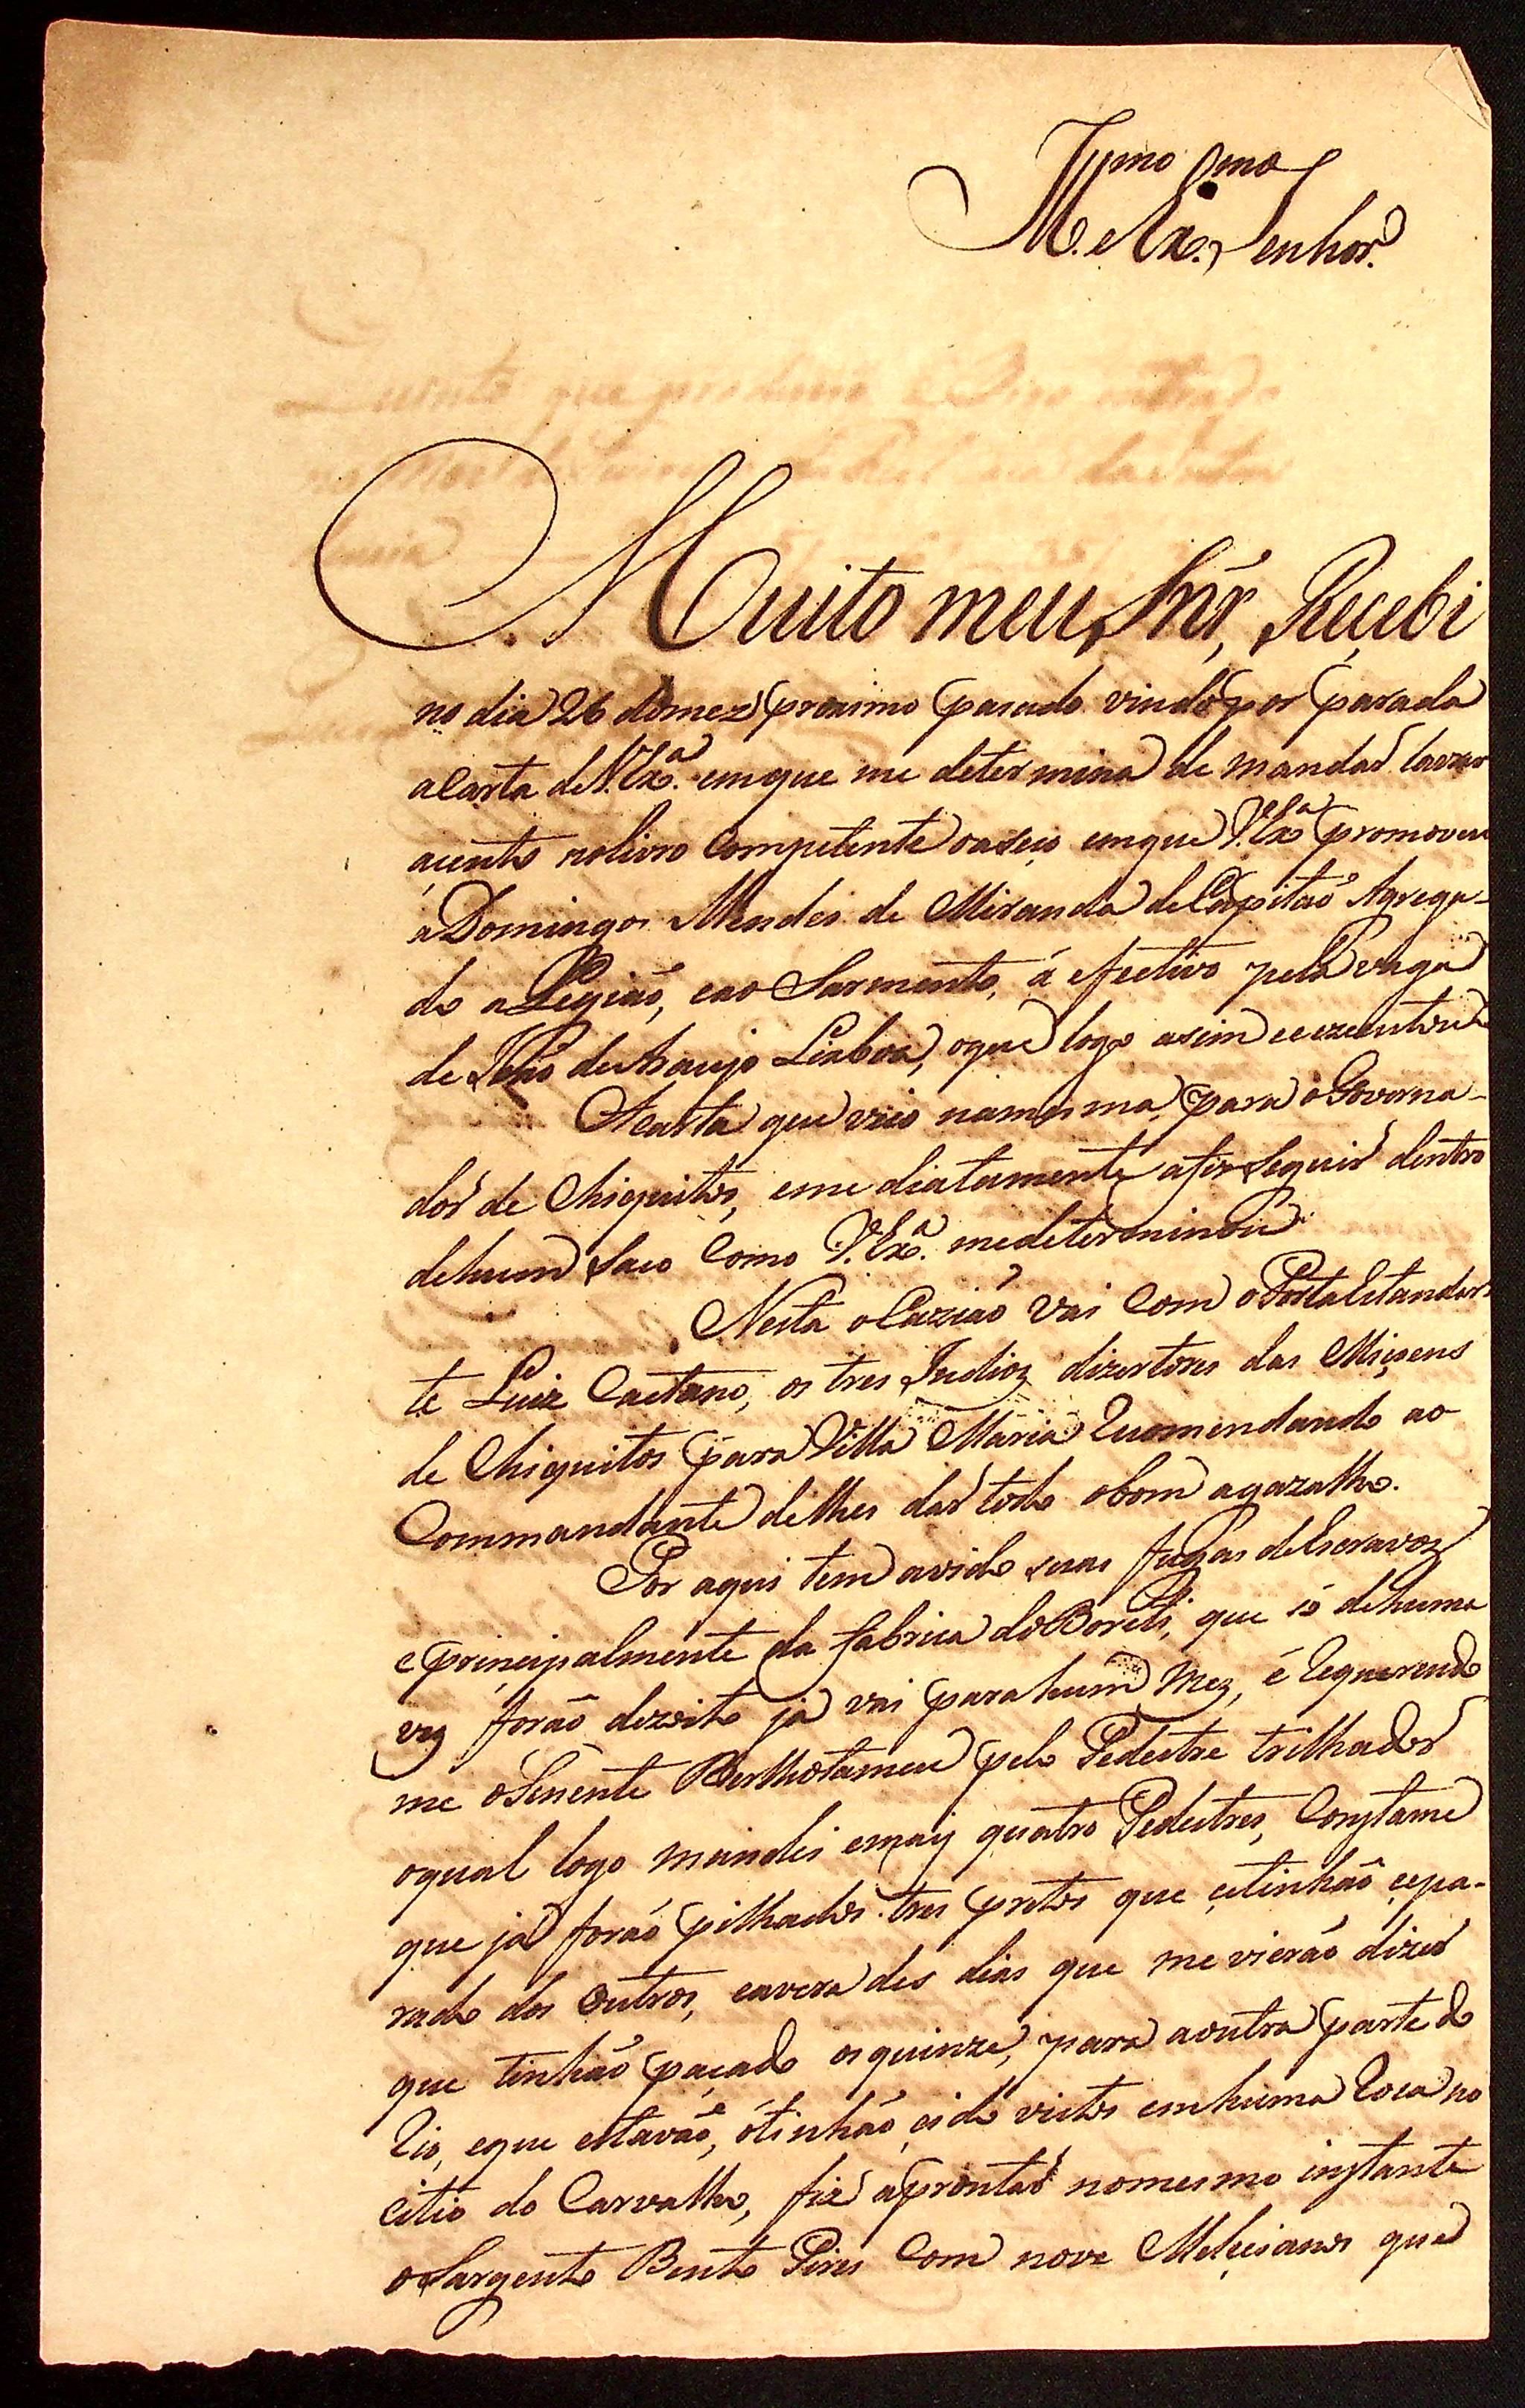 Illmo e Exmo Senhor.
Muito meu Snr, Reçebi
no dia 26 do mez proximo pasado vindo por parada
a Carta de V. Exa. em que me determina de mandar lavrar
acento no livro Competente em que V. Exa promoveu
a Domingos Mendes de Miranda de Capitaõ Agrega-
do a Legiaõ, e ao Sarmento, á efectivo pela vaga
de Joaõ de Araujo Lisboa, o que logo asim se ezecutou
A carta que veio na mesma para o Governa-
dor de Chiquitos, emediatamente a fis seguir dentro
de hum saco Como V. Exa. me determinou
Nesta oCaziaõ vai Com o Porta Estandar-
te Luiz Caetano, os tres Indioz dizertores das Miçoens
de Chiquitos para Villa Maria Recomendando ao
Commandante de lhes dar todo o bom agazalho.
Por aqui tem avido suas fugas de Escravoz
e principalmente da fabrica do Boreti, que só de huma
vez foraõ dezoito já vai para hum Mez, é Requerendo
me o Tenente Bertholameu pelo Pedestre trilhador
o qual logo mandei e maiz quatro Pedestres, Constame
que já foraõ pilhados tres pretos que ce tinhaõ cepa-
rado dos outros, e avera des dias que me vieraõ dizer
que tinhaõ paçado os quinze, para a outra parte do
Rio, e que estavaõ, ó tinhaõ cido vistos em huma Roca no
citio do Carvalho, fiz aprontar no mesmo instante
o Sargento Bento Pires Com nove Meliçianos que